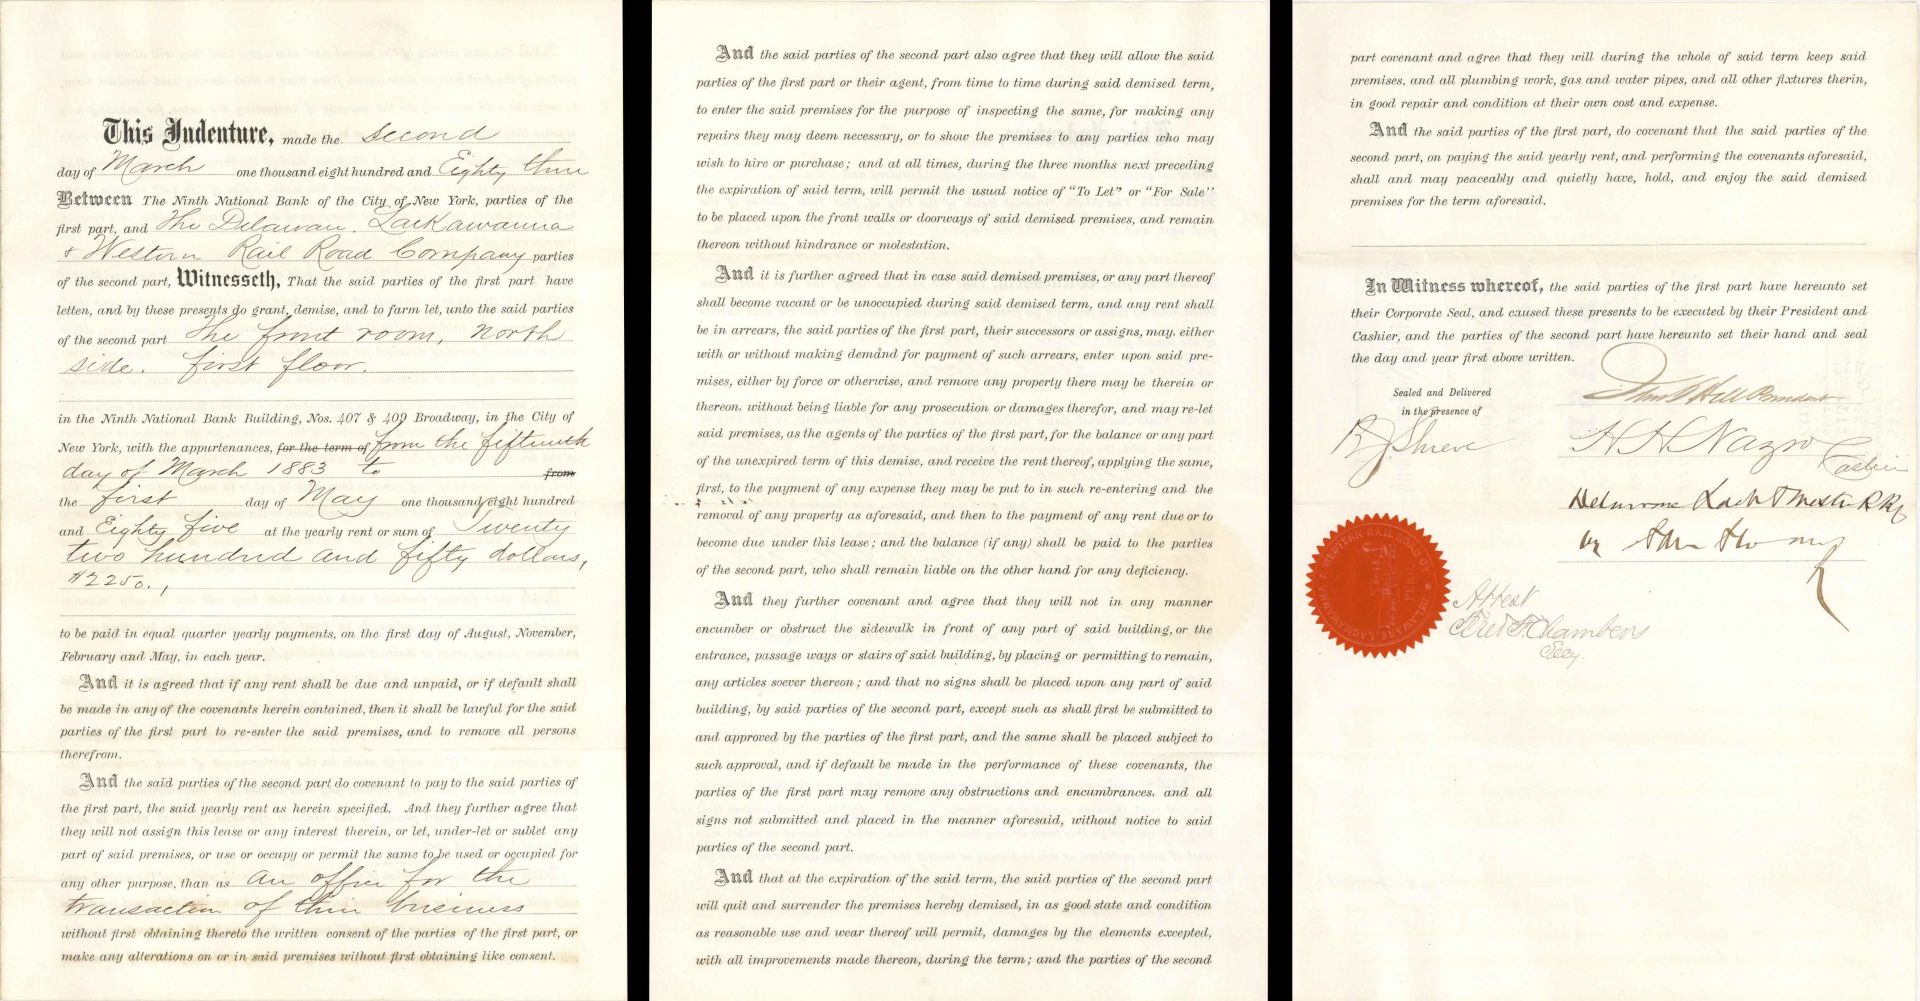 This Indenture, made the second
day of March one thousand eight hundred and Eighty three
Between The Ninth National Bank of the City of New York, parties of the
first part, and The Delaware, Lackawanna
& Western Rail Road Company parties
of the second part, Witnesseth, That the said parties of the first part have
letten, and by these presents do grant, demise, and to farm let, unto the said parties
of the second part The front room, north
side. first floor.
in the Ninth National Bank Building, Nos. 407 & 409 Broadway, in the City of
New York, with the appurtenances, for the term of from the fifteenth
day of March 1883 to from
the first day of May one thousand eight hundred
and Eighty five at the yearly rent or sum of Twenty
two hundred and fifty dollars,
$2250.,
to be paid in equal quarter yearly payments, on the first day of August, November,
February and May, in each year.
And it is agreed that if any rent shall be due and unpaid, or if default shall
be made in any of the covenants herein contained, then it shall be lawful for the said
parties of the first part to re-enter the said premises, and to remove all persons
therefrom.
And the said parties of the second part do covenant to pay to the said parties of
the first part, the said yearly rent as herein specified. And they further agree that
they will not assign this lease or any interest therein, or let, under-let or sublet any
part of said premises, or use or occupy or permit the same to be used or occupied for
any other purpose, than as an office for the
transaction of their business
without first obtaining thereto the written consent of the parties of the first part, or
make any alterations on or in said premises without first obtaining like consent.
And the said parties of the second part also agree that they will allow the said
parties of the first part or their agent, from time to time during said demised term,
to enter the said premises for the purpose of inspecting the same, for making any
repairs they may deem necessary, or to show the premises to any parties who may
wish to hire or purchase; and at all times, during the three months next preceding
the expiration of said term, will permit the usual notice of "To Let" or "For Sale"
to be placed upon the front walls or doorways of said demised premises, and remain
thereon without hindrance or molestation.
And it is further agreed that in case said demised premises, or any part thereof
shall become vacant or be unoccupied during said demised term, and any rent shall
be in arrears, the said parties of the first part, their successors or assigns, may, either
with or without making demand for payment of such arrears, enter upon said pre-
mises, either by force or otherwise, and remove any property there may be therein or
thereon, without being liable for any prosecution or damages therefor, and may re-let
said premises, as the agents of the parties of the first part, for the balance or any part
of the unexpired term of this demise, and receive the rent thereof, applying the same,
first, to the payment of any expense they may be put to in such re-entering and the
removal of any property as aforesaid, and then to the payment of any rent due or to
become due under this lease; and the balance (if any) shall be paid to the parties
of the second part, who shall remain liable on the other hand for any deficiency.
And they further covenant and agree that they will not in any manner
encumber or obstruct the sidewalk in front of any part of said building, or the
entrance, passage ways or stairs of said building, by placing or permitting to remain,
any articles soever thereon; and that no signs shall be placed upon any part of said
building, by said parties of the second part, except such as shall first be submitted to
and approved by the parties of the first part, and the same shall be placed subject to
such approval, and if default be made in the performance of these covenants, the
parties of the first part may remove any obstructions and encumbrances, and all
signs not submitted and placed in the manner aforesaid, without notice to said
parties of the second part.
And that at the expiration of the said term, the said parties of the second part
will quit and surrender the premises hereby demised, in as good state and condition
as reasonable use and wear thereof will permit, damages by the elements excepted,
with all improvements made thereon, during the term; and the parties of the second
part covenant and agree that they will during the whole of said term keep said
premises, and all plumbing work, gas and water pipes, and all other fixtures therin,
in good repair and condition at their own cost and expense.
And the said parties of the first part, do covenant that the said parties of the
second part, on paying the said yearly rent, and performing the covenants aforesaid,
shall and may peaceably and quietly have, hold, and enjoy the said demised
premises for the term aforesaid.
In Witness whereof, the said parties of the first part have hereunto set
their Corporate Seal, and caused these presents to be executed by their President and
Cashier, and the parties of the second part have hereunto set their hand and seal
the day and year first above written.
Sealed and Delivered
in the presence of
Hill President
H H Nazro
Cashier
Attest
Fred F. Chambers
Secy.